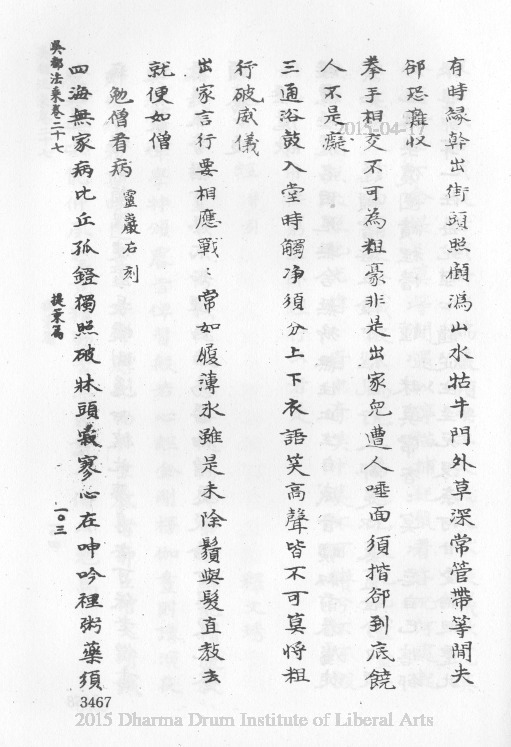 有時緣幹出街頭照顧溈山水牯牛門外草深常管帶等閒失
郤恐難收
拳手相交不可為粗豪非是出家兒遭人唾面須揩郤到底饒
人不是癡
三通浴鼓入堂時觸净須分上下衣語笑高聲皆不可莫將粗
行破威儀
出家言行要相應戰〻常如履薄氷雖是未除鬚與髮直教去
就便如僧
勉僧看病 靈巖石刻
四海無家病比丘孤鐙獨照破牀頭寂寥心在呻吟裡粥藥須
吳都法乘卷二十七 提業篇 一〇三
3467
2015-04-17
2015 Dharma Drum Institute of Liberal Arts